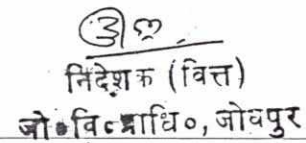 निदेशक (वित्त)
जो॰वि॰प्राधि॰, जोधपुर